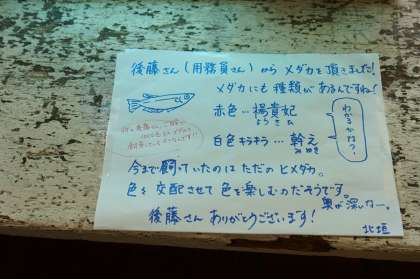 後藤さん(用務員さん)から メダカを頂きました!
メダカにも種類があるんですね!
赤色…楊貴妃
ようきひ
わかるかな?
白色キラキラ…幹え
みゆき
今まで飼っていたのは ただの ヒメダカ。
色を交配させて 色を楽しむのだそうです。
奥が深いなー。
後藤さん ありがとうございます!
北垣